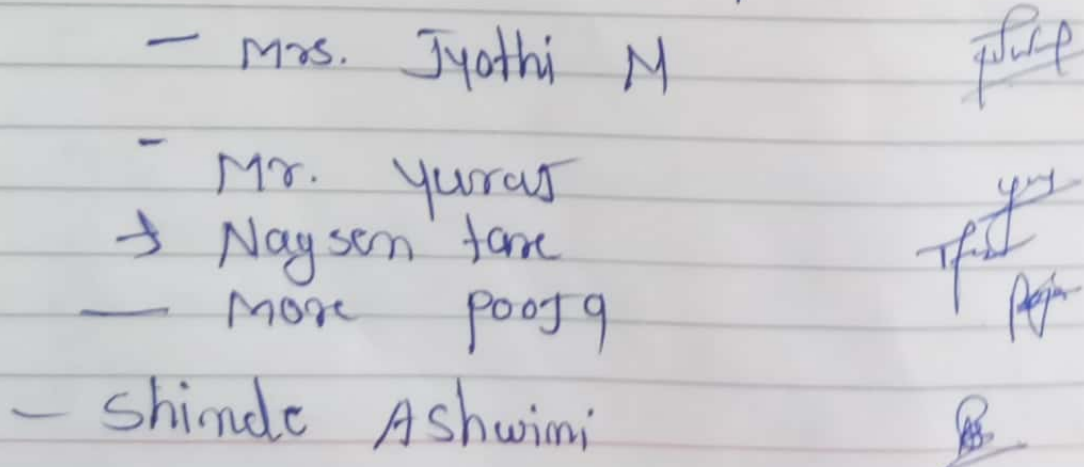 - Mrs. Jyothi M
- Mr. yuraj
→ Nagsen tare
— More pooja
- Shinde Ashwini